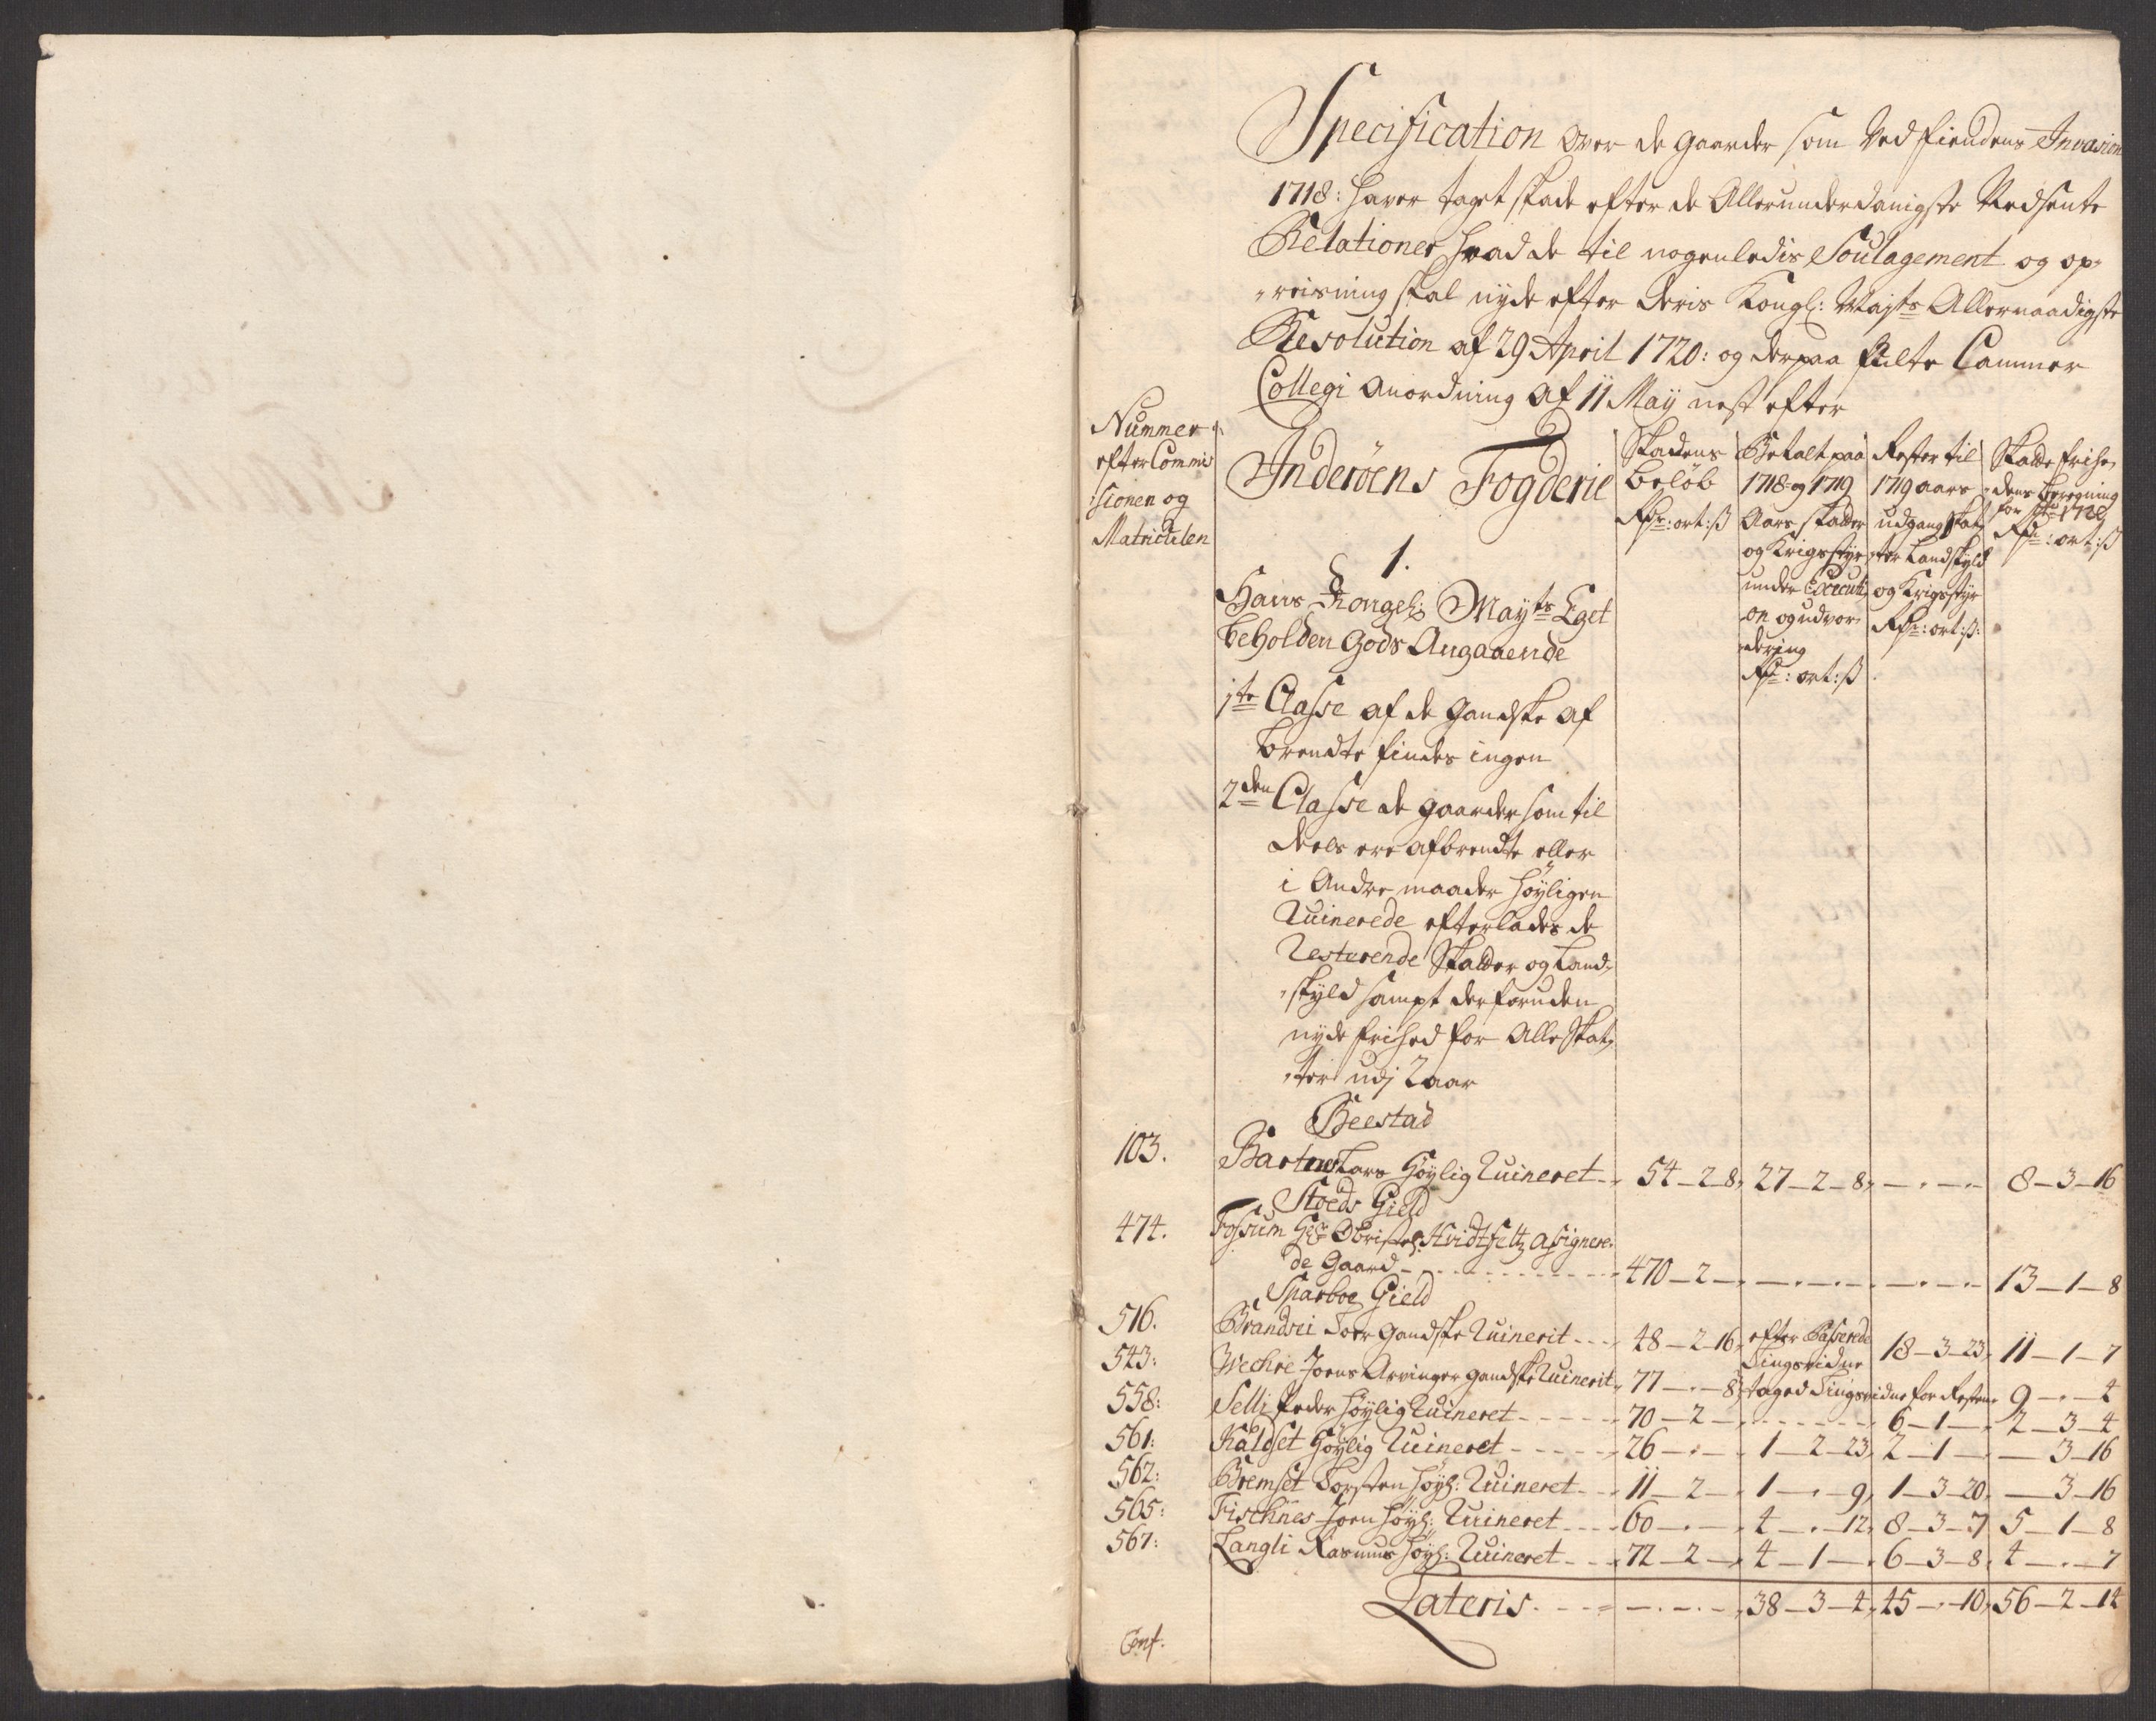 Specification over de gaarder som ved fiendens Invasion
1718: hafver taget skade efter de Allerunderdanigste Nedsente
Relationer hvad de til nogenledis Soulagement og op-
-reisning skal nyde efter deris Kongl: Mayts Allernaadigste
Resolution af 29 April 1720: og derpaa fulte Cammer
Collegi anordning af 11 May nest efter
Nummer
efter Commis
sionen og
Matriculen
Inderöens Fogderie
Skadens
beløb
Rdr: ort: ß
Betalt paa
1718 og 1719
Aars skatter
og Krigsstyr
under Executi
on og udvor-
dering
Rdr: ort: ß
Rester til
1719 aars
udgang skat-
ter Landskyld
og Krigsstyr
Rdr: ort: ß:
Skatte frihe-
dens beregning
for 1720
Rdr: ort: ß
§ 1.
Hans Kongel: Mayts Eget
beholden Gods Angaaende
1te Classe af de gandske af
brendte findes ingen
2den Classe de gaarder som til
deels ere afbrendte eller
i andre maader höyligen
Ruinerede efterlades de
Resterende Skatter og Land-
-skyld sampt derforuden
nyde frihed for alle Skat-
-ter udj 2 aar
Beestad
103. Bartnes Lars Höylig Ruineret 54-2-8 27-2-8 - . - 8-3-16
Stoeds Gield
474. Fossum Hr Obriste Hvidtfeltz assignere-
de Gaard 470-2- - . - - . - 13-1-8
Sparboe Gield
516. Brandsei Toer gandske Ruinerit 48-2-16 efter Passerede Tingsvidne 18-3-23 11-1-7
543: Wechre Joens Arvinger gandske Ruinerit 77-.-8 taged Tingsvidne for Resten 9-.-4
558: Selli Peder höylig Ruineret 70-2- - 6-1- 2-3-4
561: Kaldset Höylig Ruineret 26-.- 1-2-23 2-1- -3-16
562: Bremset Torsten höyl: Ruineret 11-2- 1-.-9 1-3-20 -3-16
565: Fischnes Joen höyl: Ruineret 60-.- 4-.-12 8-3-7 5-1-8
567: Langli Rasmus höyl: Ruineret 72-2- 4-1- 6-3-8 4-.-7
Lateris - . - 38-3-4 45-.-10 56-2-14
Conf.